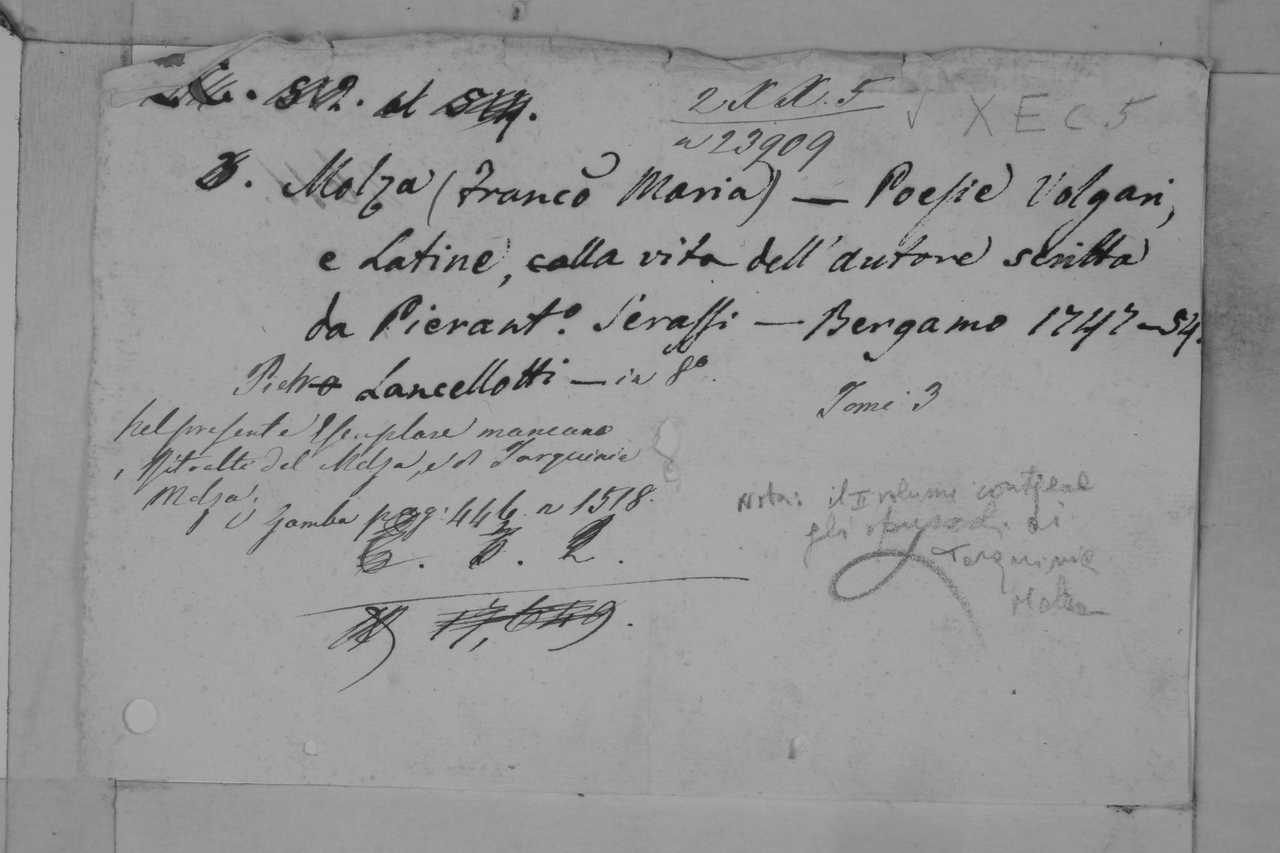 512. al 514.
2 X X. 5
n 23909
X E C 5
3. Molza (Francō Maria) — Poesie Volgari,
e Latine, colla vita dell'autore scritta
da Pierant.o Serassi — Bergamo 1747–54.
Pietro Lancellotti — in 8.o
Tomi 3
Nel presente Esemplare mancano
i Ritratti del Molza, e di Tarquinia
Molza.
V. Gamba pag: 446. n 1518.
Nota: il II volume contiene
gli opuscoli di
Tarquinia
Molza
6. 3. 2.
17,649.